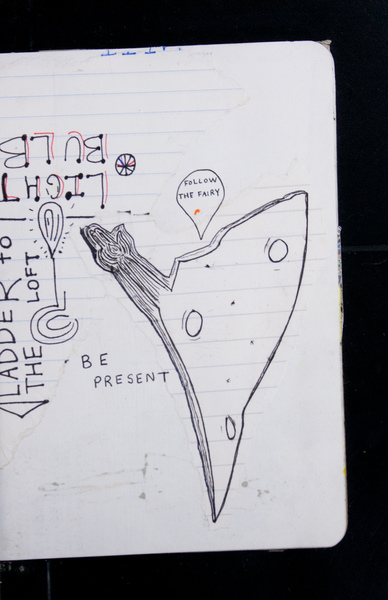 LIGHT
BULB
LADDER TO
THE LOFT
FOLLOW
THE FAIRY
BE
PRESENT